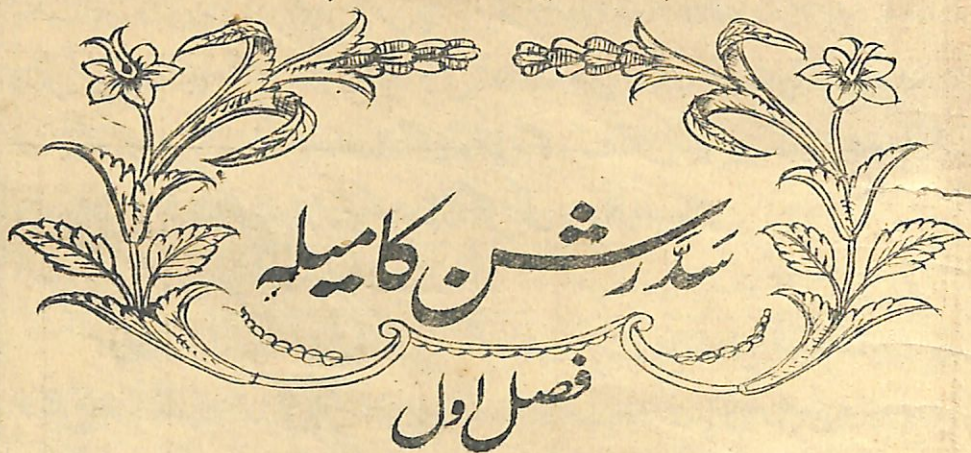 سَدَّرشن کا میلہ
فصل اول